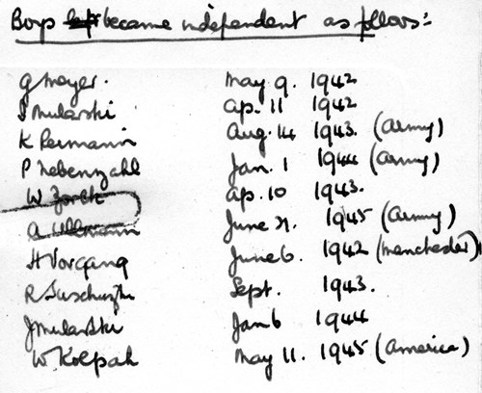 Boys became independent as follows:
G Meyer. May 9. 1942
Mularski Ap. 11 1942
K Permann Aug. 14 1943. (Army)
P Nebenzahl Jan. 1 1944 (Army)
W Ap. 10 1943.
A Ullmann June 1945 (Army)
H Vorgang June 6. 1942 (Manchester)
R Sept. 1943.
J Mularski Jan 6 1944
W. Kolpak May 11. 1945 (America)